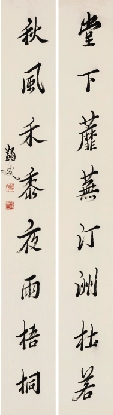 堂下蘼蕪汀洲杜若
秋風禾黍夜雨梧桐